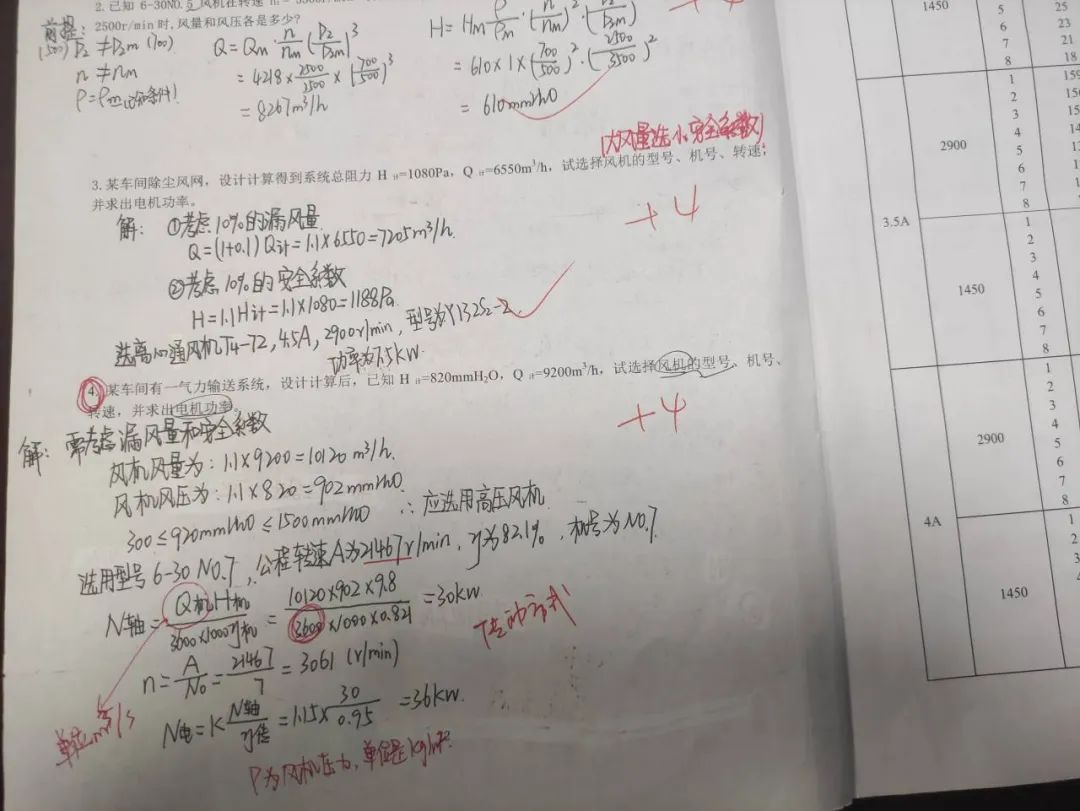 2. 已知 6-30NO.5 风机在转速
2500r/min 时,风量和风压各是多少?
前提:
(500) D₂ ≠ D₂m (700)
n ≠ nm
ρ = ρm
Q = Qm · n/nm (D₂/D₂m)³
= 4218 × 2500/2500 × (700/500)³
= 8267m³/h
H = Hm ρ/ρm · (n/nm)² · (D₂/D₂m)²
= 610×1×(700/500)²·(2500/3500)²
= 610mmH₂O
+4
(大风量选小安全系数)
3. 某车间除尘风网,设计计算得到系统总阻力 H 计=1080Pa,Q 计=6550m³/h,试选择风机的型号、机号、转速;
并求出电机功率。
+4
解: ①考虑10%的漏风量
Q=(1+0.1)Q计=1.1×6550=7205m³/h.
②考虑10%的安全系数
H=1.1H计=1.1×1080=1188Pa.
选离心通风机T4-72, 4.5A, 2900r/min, 型号为Y132S₂-2.
功率为7.5kW.
4. 某车间有一气力输送系统,设计计算后,已知 H 计=820mmH₂O,Q 计=9200m³/h,试选择风机的型号、机号、
转速,并求出电机功率。
+4
解: 需考虑漏风量和安全系数
风机风量为: 1.1×9200=10120m³/h.
风机风压为: 1.1×820=902mmH₂O.
300≤920mmH₂O≤1500mmH₂O ∴应选用高压风机
选用型号6-30 NO.7, 公程转速A为21467r/min, η为82.1%, 机号为NO.7.
N轴=Q机H机/3600×1000η机=10120×902×9.8/3600×1000×0.821=30kW.
传动方式
n=A/No=21467/7=3061(r/min)
N电=K N轴/η传=1.15×30/0.95=36kW.
单位m³/s
P为风机压力,单位是kg/m².
1450
5
6
7
8
25
23
21
18
3.5A
2900
1
2
3
4
5
6
7
8
1450
1
2
3
4
5
6
7
8
4A
2900
1
2
3
4
5
6
7
8
1450
1
2
3